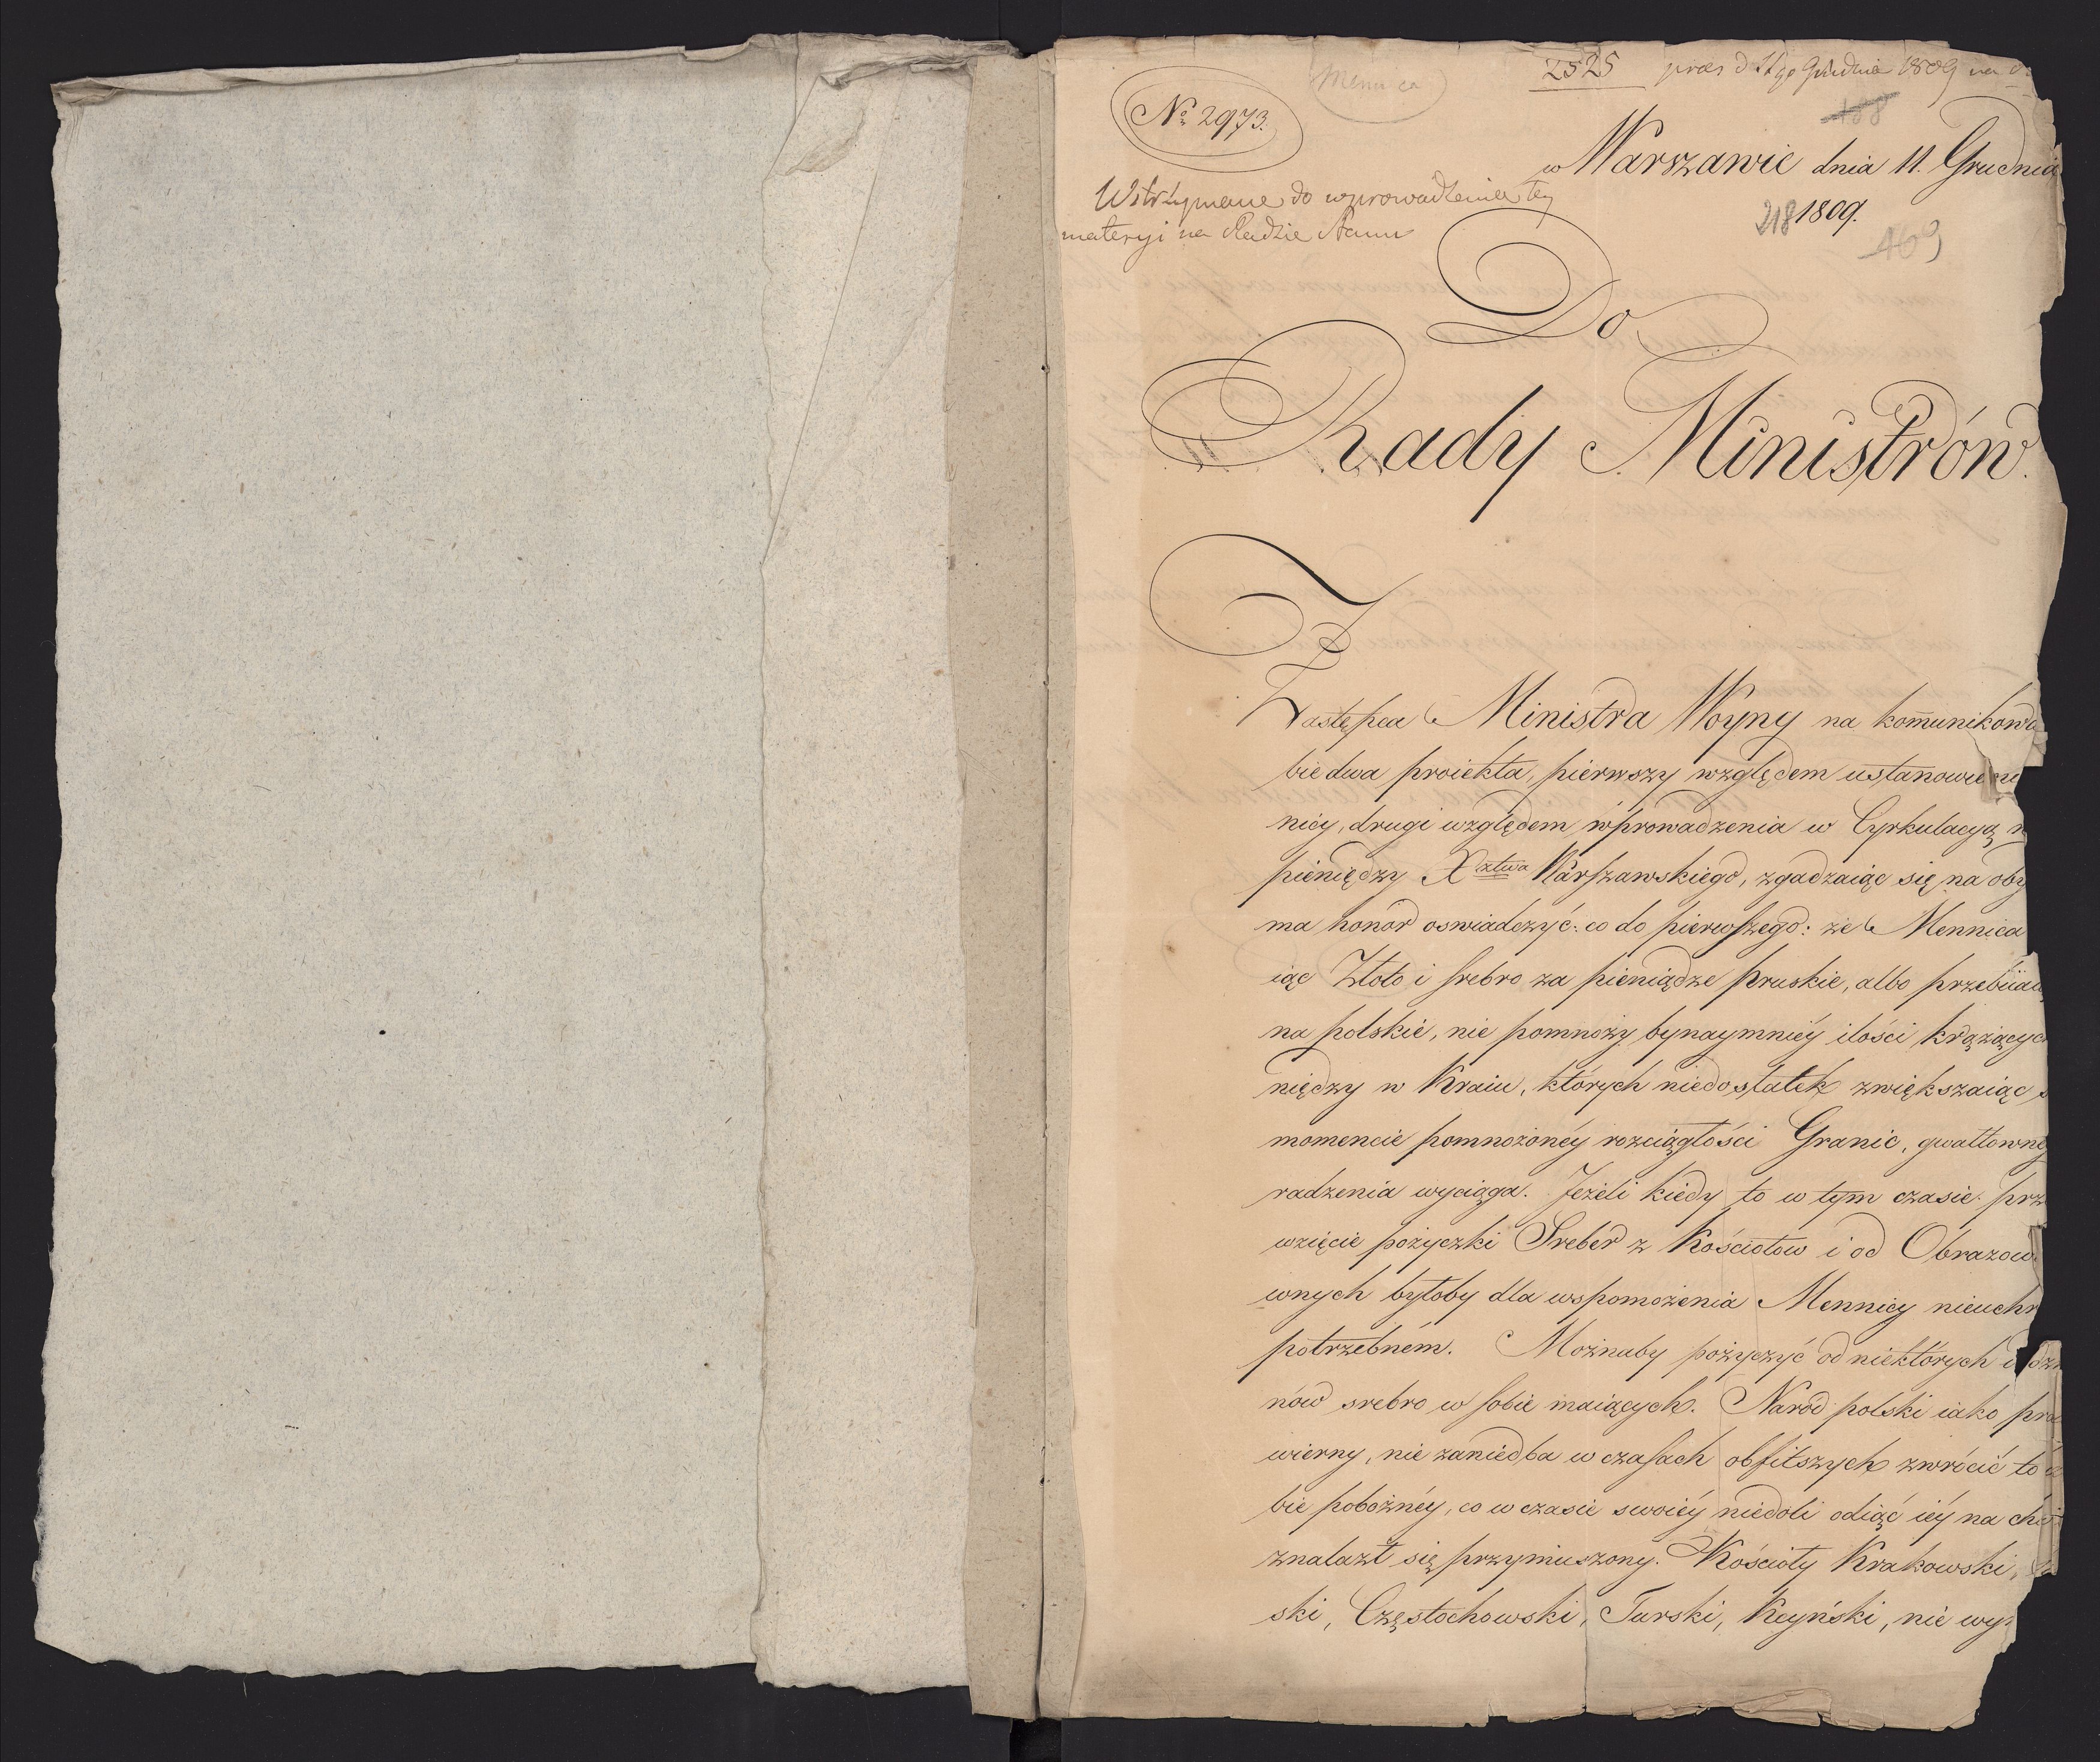 Mennica
2525 præs d 11go Grudnia 1809
№ 2973.
188
w Warszawie dnia 11. Grudnia
218 1809.
469
Wstrzymane do wprowadzenia tey
materyi na Radzie Stanu
Do
Rady Ministrów.
Zastępca Ministra Woyny na kom̄unikowa
bie dwa proiekta, pierwszy względem ustanowieni
nicy, drugi względem wprowadzenia w Cyrkulacyą n
pieniędzy Xztwa Warszawskiego, zgadzaiąc się na oby
ma honor oswiadczyć: co do pierwszego: że Mennica
iąc Złoto i srebro za pieniądze pruskie, albo przebiiaią
na polskie, nie pomnoży bynaymniéy ilości krążących
niędzy w Kraiu, których niedostatek zwiększaiąc s
momencie pomnożonéy rozciągłości Granic, gwałtowne
radzenia wyciąga. Jeżeli kiedy to w tym czasie prz
wzięcie pożyczki Sreber z Kościołow i od Obrazow
wnych byłoby dla wspomożenia Mennicy nieuchr
potrzebném. Możnaby pożyczyć od niektórych
nów srebro w sobie maiących. Naród polski iako pra
wierny, nie zaniedba w czasach obfitszych zwrócić to
bie pobożnéy, co w czasie swoiéy niedoli odiąć iéy na chw
znalazł się przymuszony. Kościoły Krakowski,
ski, Częstochowski, Turski, Kcyński, nie wy